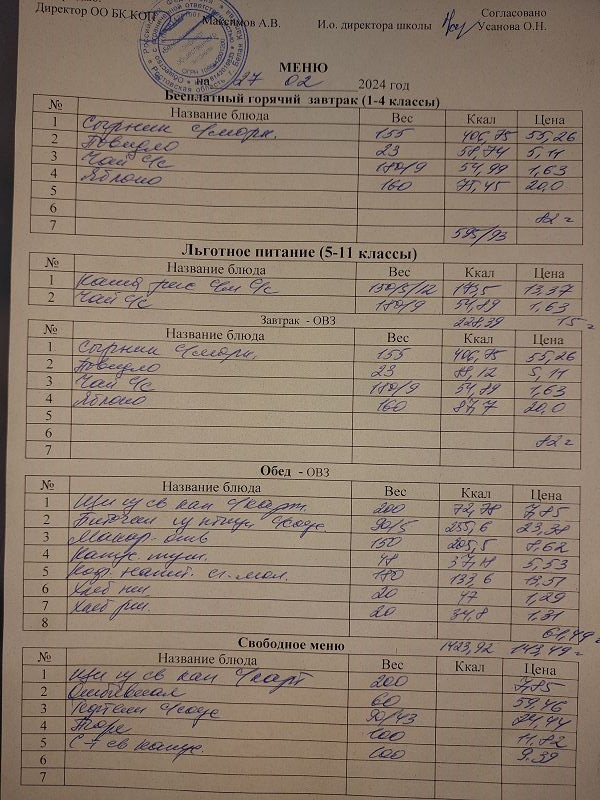 Директор ОО БК КОП Максимов А.В. И.о. директора школы Согласовано
Усанова О.Н.
МЕНЮ
на 27 02 2024 год
Бесплатный горячий завтрак (1-4 классы)
№ Название блюда Вес Ккал Цена
1 Сырник с/морк. 155 406,75 55,26
2 Повидло 23 5,11
3 Чай с/с 180/9 54,99 1,63
4 Яблоко 160 75,45 20,0
5
6 82
7 595/93
Льготное питание (5-11 классы)
№ Название блюда Вес Ккал Цена
1 Каша рис с/м с/с 150/5/12 13,37
2 Чай с/с 180/9 54,89 1,63
228,39 15
Завтрак - ОВЗ
№ Название блюда Вес Ккал Цена
1 Сырник с/морк. 155 406,75 55,26
2 Повидло 23 5,11
3 Чай с/с 180/9 54,89 1,63
4 Яблоко 160 20,0
5
6 82
7
Обед - ОВЗ
№ Название блюда Вес Ккал Цена
1 Щи из св кап с/карт. 200 72,78 7,85
2 Биточки из птицы с/соус. 90/5 255,6 23,38
3 Макар. отв 150 205,5 8,62
4 Капус. туш. 48 37,11 5,53
5 Коф. напит. сг. мол. 180 133,6 13,51
6 Хлеб пш. 20 47 1,29
7 Хлеб рж. 20 34,8 1,31
8 61,49
1423,92 143,49
Свободное меню
№ Название блюда Вес Ккал Цена
1 Щи из св кап с/карт 200 7,85
2 60 59,46
3 Тефтели с/соус 90/43
4 Пюре 100 11,82
5 С-т св капус. 100 9,39
6
7